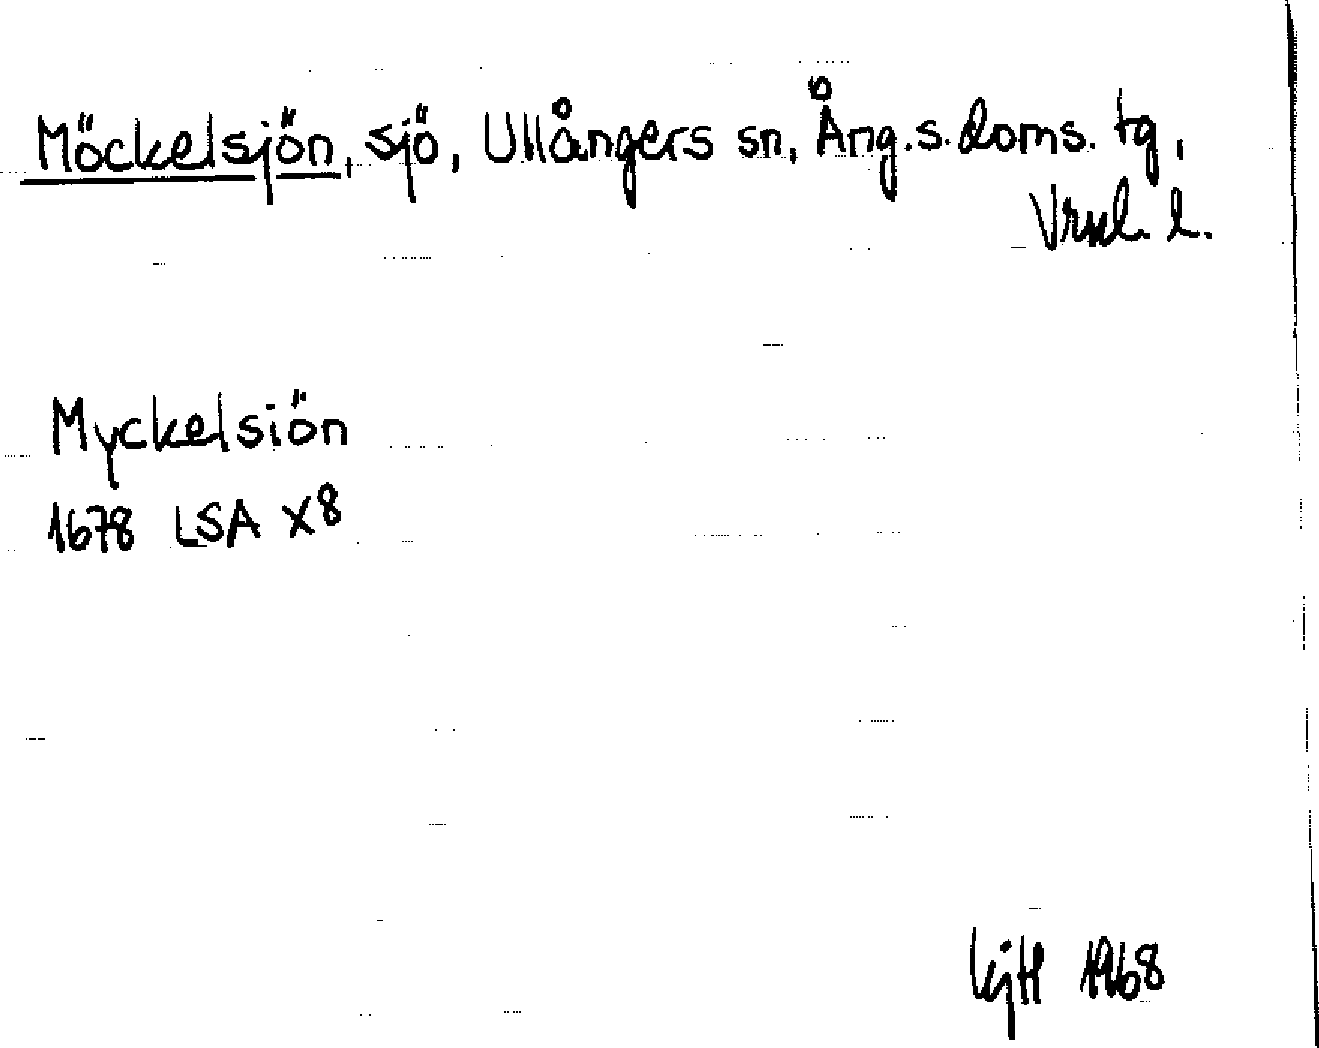 Möckelsjön, sjö, Ullångers sn, Ång.s.doms. tg,
Vrnl. l.
Myckelsiön
1678 LSA X8
1968